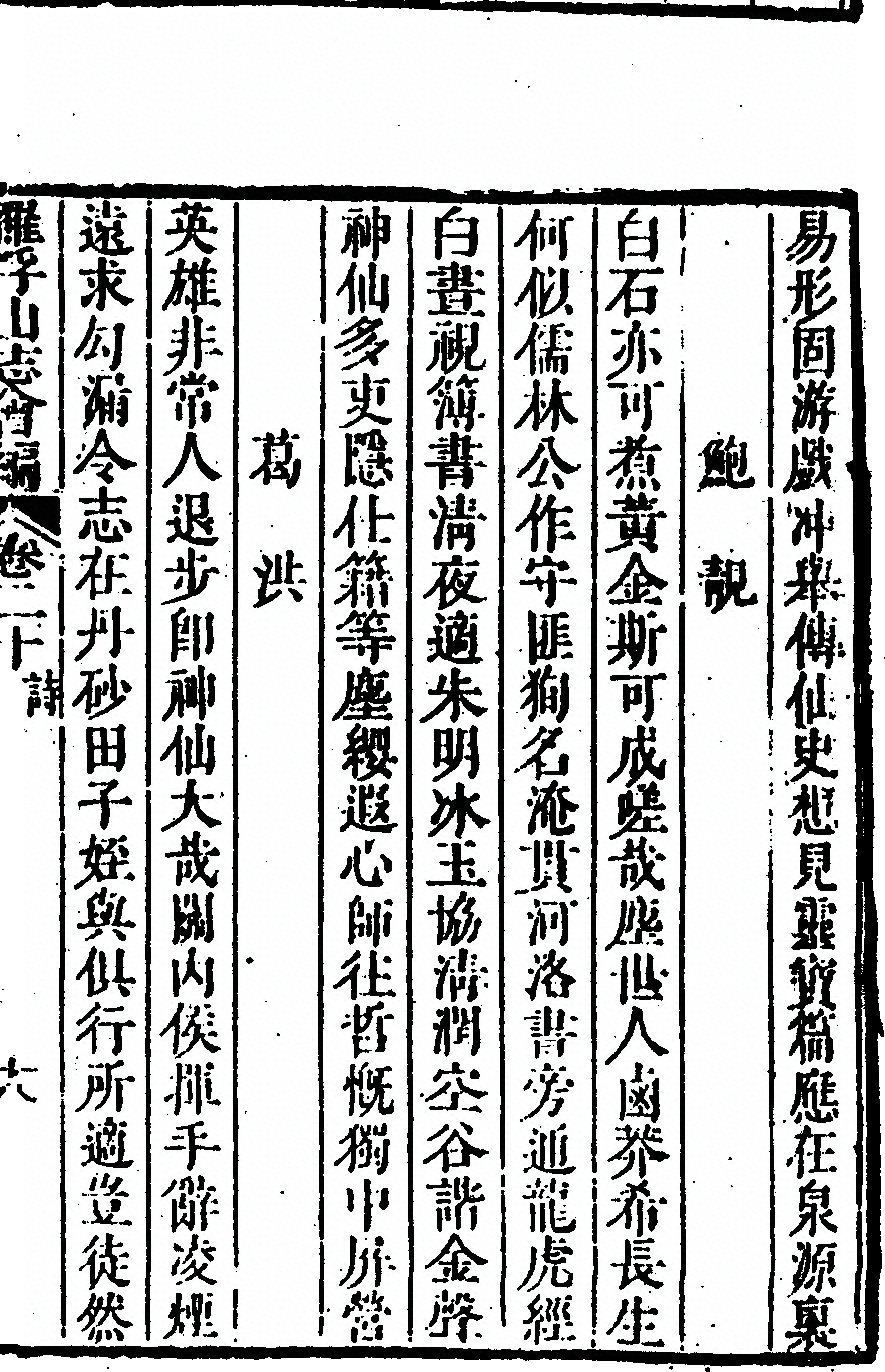 易形固游戲沖舉傳仙史想見靈寶篇應在泉源裏
鮑靚
白石亦可煮黃金斯可成嗟哉塵世人鹵莽希長生
何似儒林公作守匪狥名淹貫河洛書旁通龍虎經
白晝視簿書淸夜適朱明冰玉協淸潤空谷諧金聲
神仙多吏隱仕籍等塵纓遐心師往哲慨獨中所營
葛洪
英雄非常人退步卽神仙大哉關內侯揮手辭凌煙
遠求勾漏令志在丹砂田子姪與俱行所適豈徒然
羅浮山志會編 卷二十 詩 六